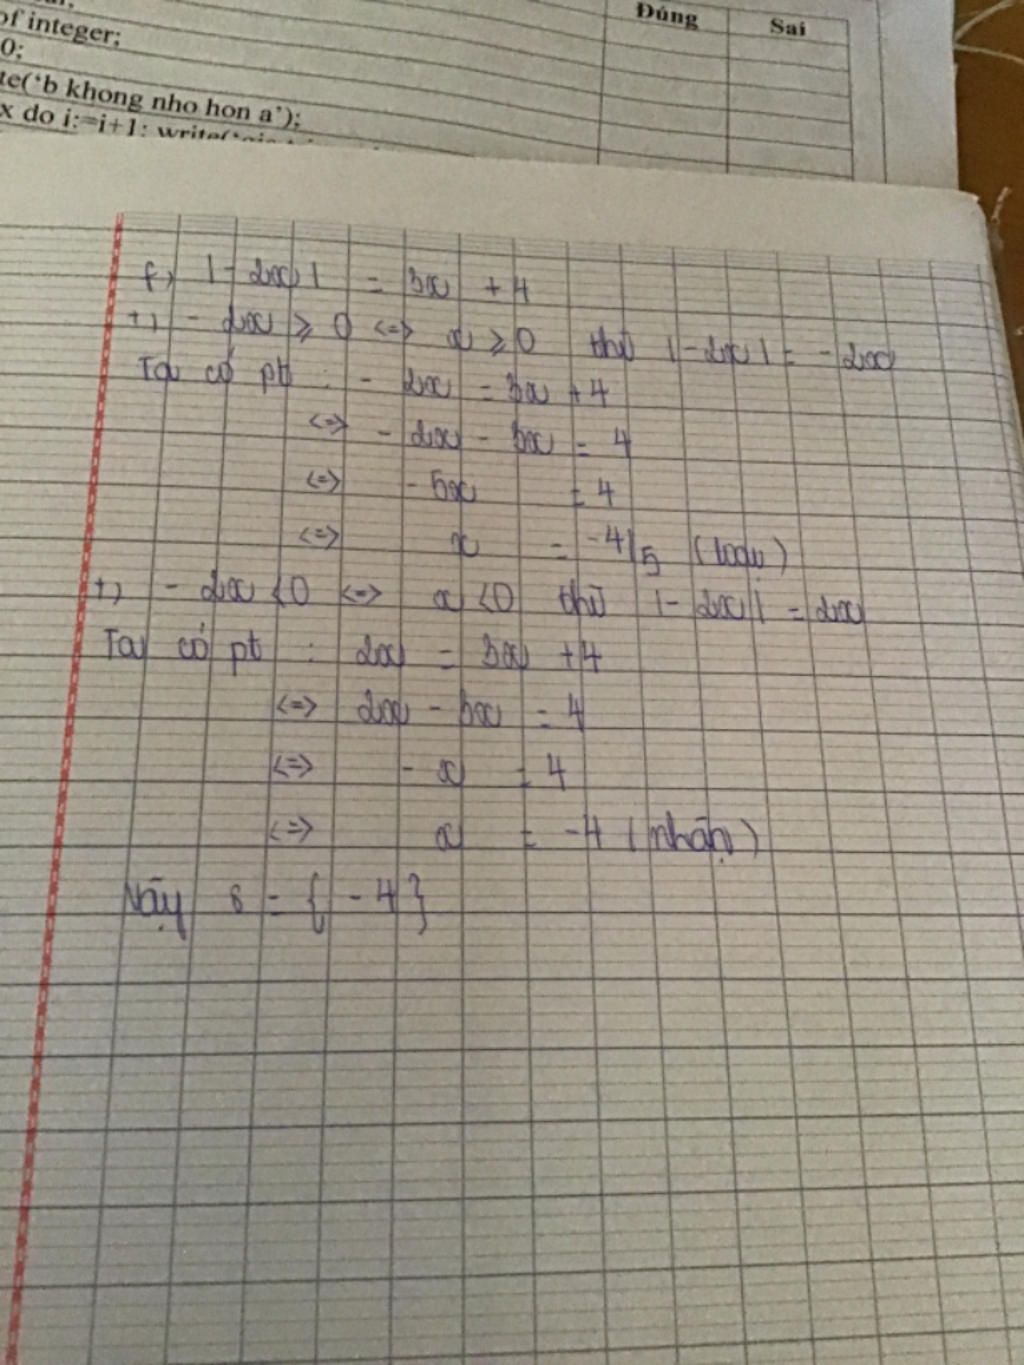 of integer;
0;
te('b khong nho hon a');
x do i:=i+1; write('
Đúng Sai
f) |-2x| = 3x + 4
+) -2x ≥ 0 <=> x ≥ 0 thì |-2x| = -2x
Ta có pt : -2x = 3x + 4
<=> -2x - 3x = 4
<=> -5x = 4
<=> x = -4/5 (loại)
+) -2x < 0 <=> x < 0 thì |-2x| = 2x
Ta có pt : 2x = 3x + 4
<=> 2x - 3x = 4
<=> -x = 4
<=> x = -4 (nhận)
Vậy S = { -4 }